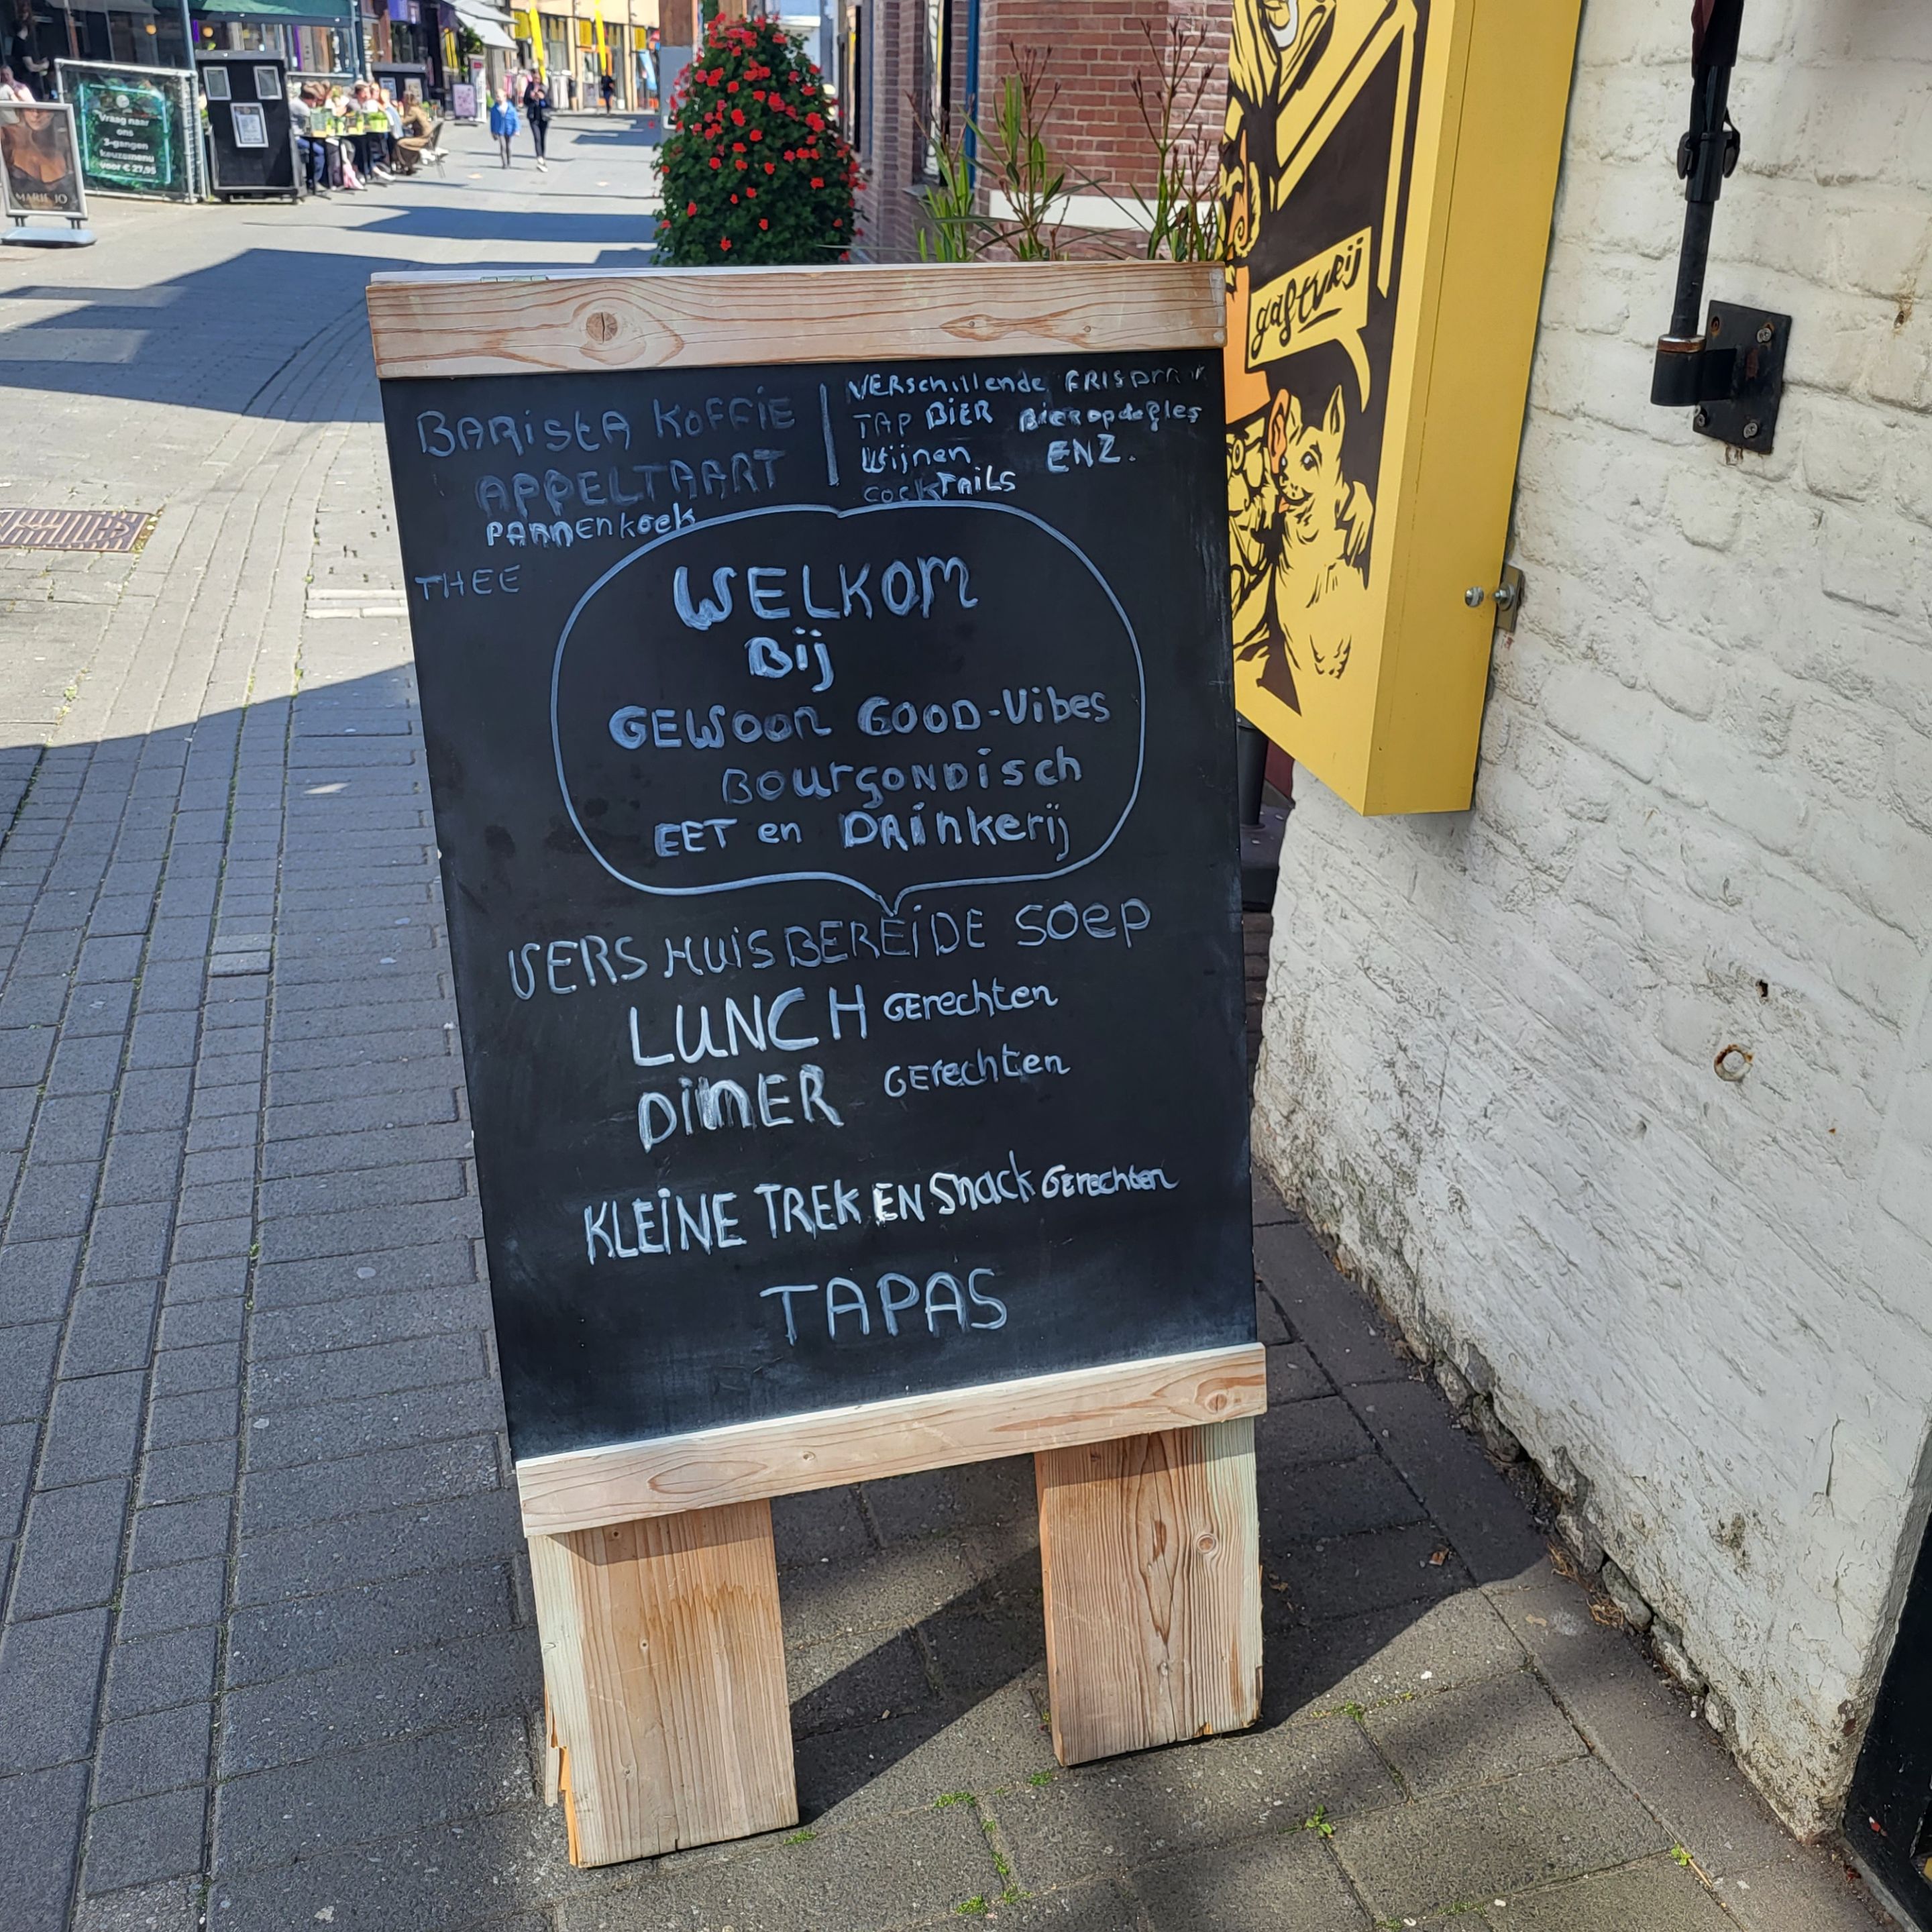 Vraag naar
ons
3-gangen
keuzemenu
voor € 27,95
MARIE JO
gastvrij
BARISTA KOFFIE
APPELTAART
PANNENKOEK
THEE
VERSchillende
TAP BIER Bier op de fles
Wijnen ENZ.
COCKTAILS
WELKOM
Bij
GEWOON GOOD-Vibes
BOURGONDISCH
EET en DRINKERIJ
VERS HUISBEREIDE SOEP
LUNCH GERECHTEN
DINER GERECHTEN
KLEINE TREK EN Snack GERECHTEN
TAPAS